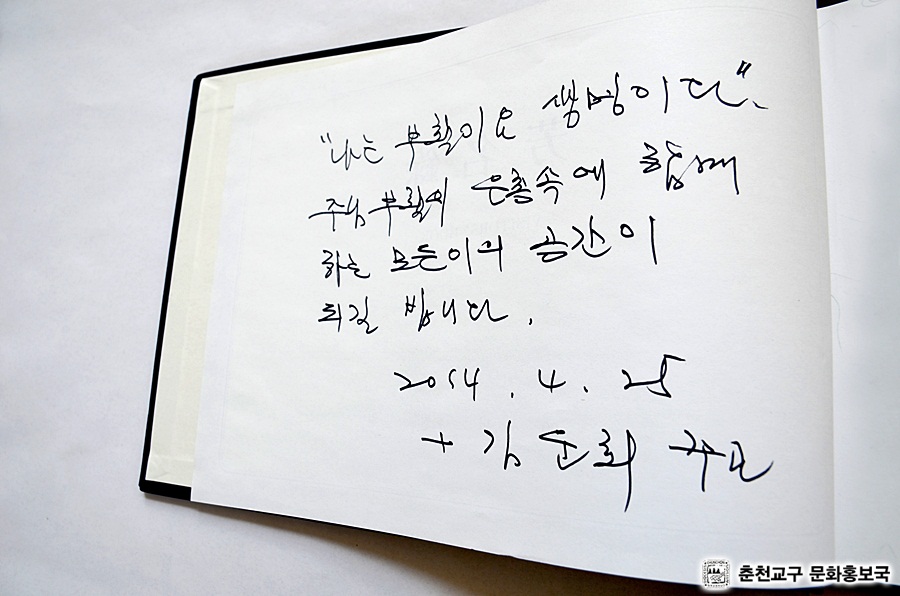 "나는 부활이요 생명이다".
주님 부활의 은총속에 함께
하는 모든이의 공간이
되길 빕니다.
2014. 4. 25
+ 김 운 회 주교
춘천교구 문화홍보국